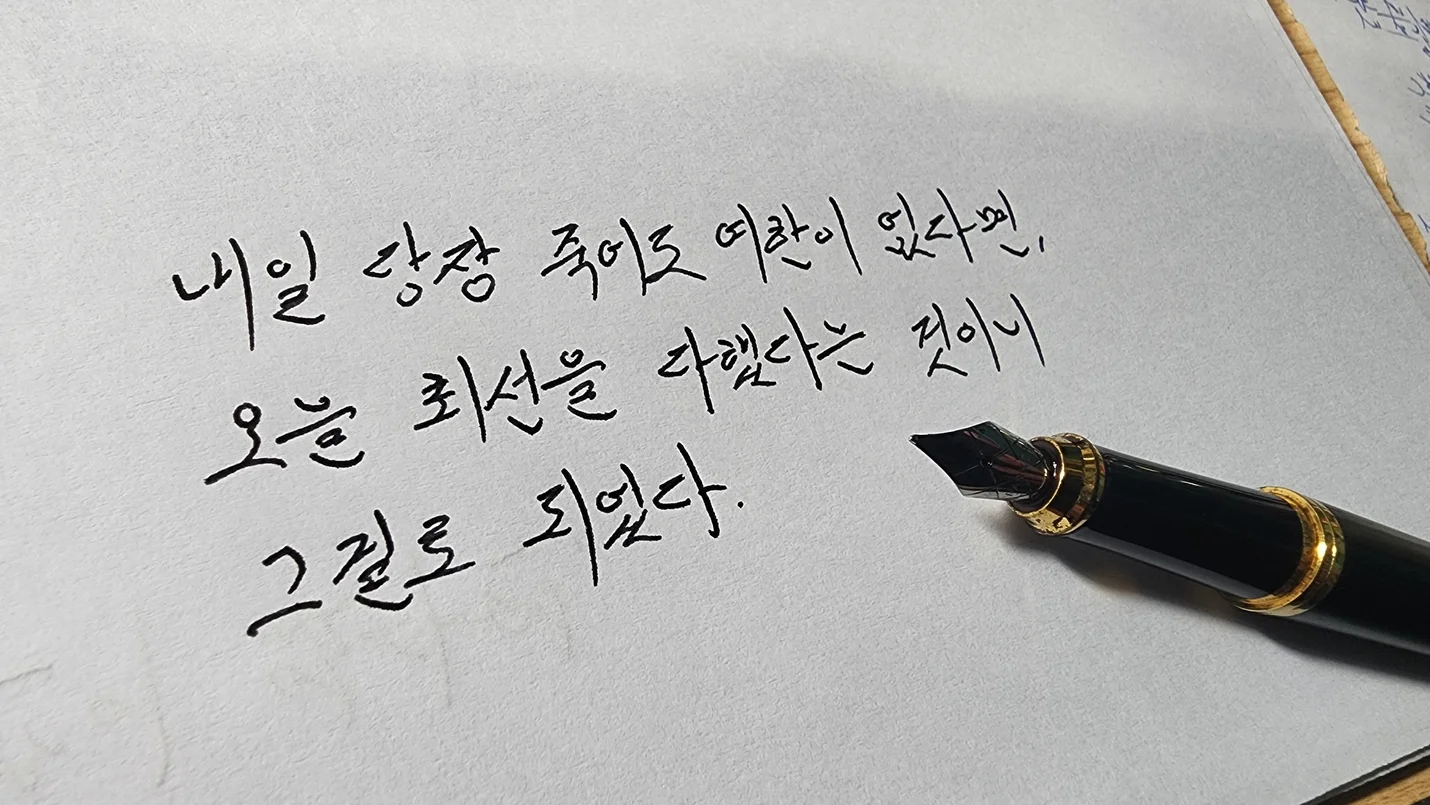 내일 당장 죽어도 여한이 없다면,
오늘 최선을 다했다는 것이니
그걸로 되었다.